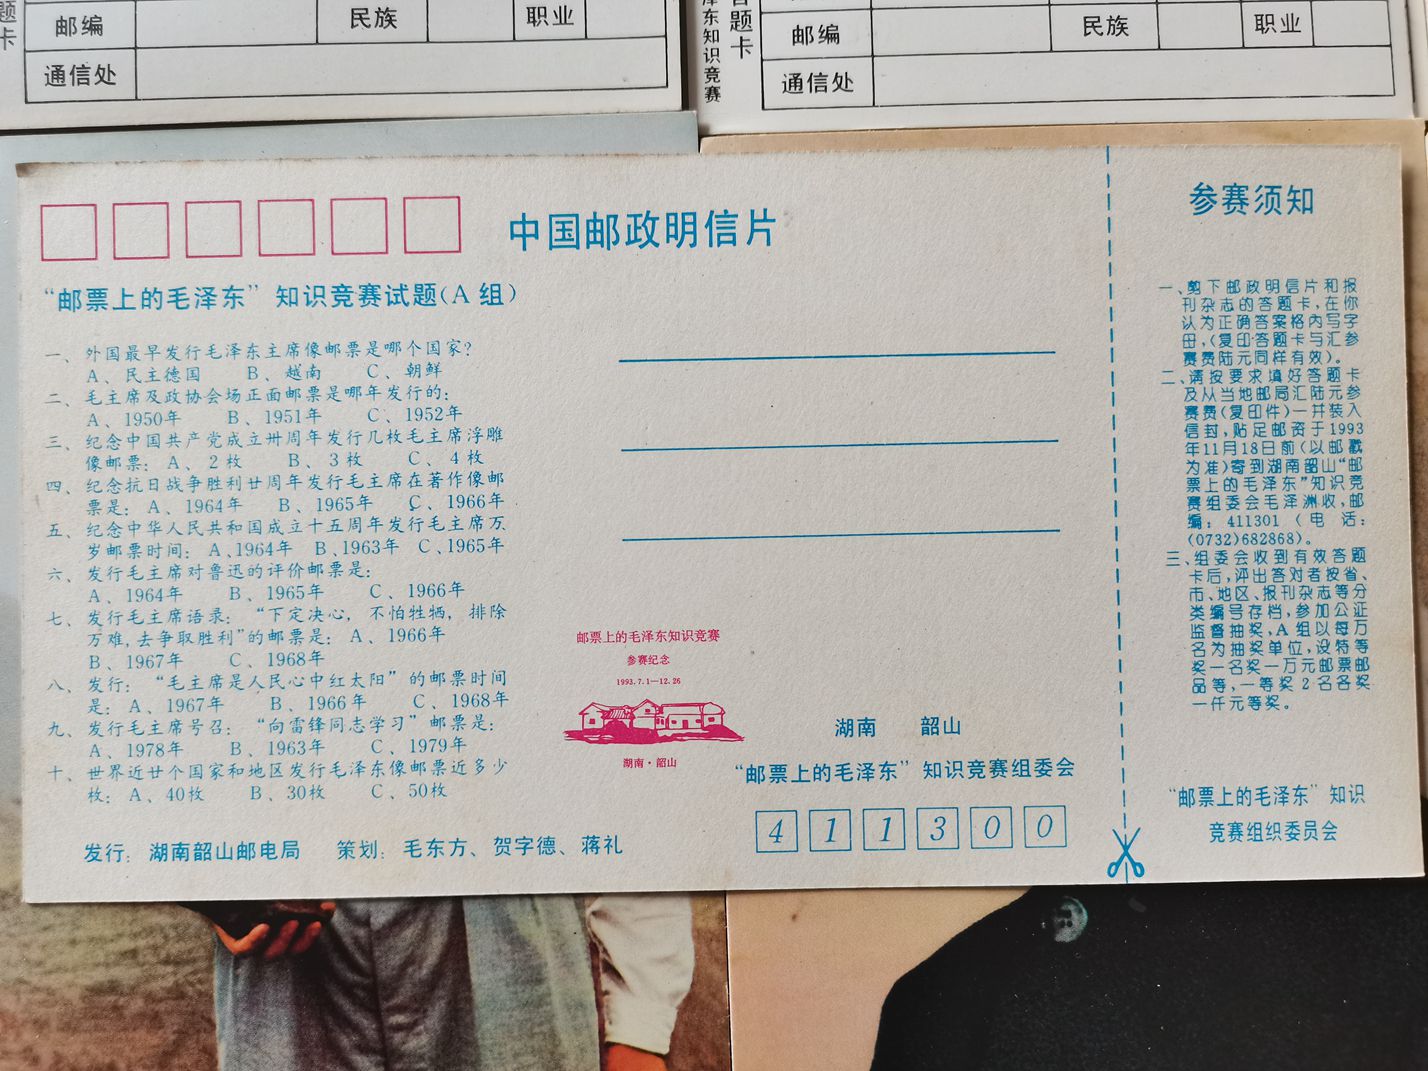 题卡
邮编
民族
职业
通信处
泽东知识竞赛
答题卡
邮编
民族
职业
通信处
中国邮政明信片
“邮票上的毛泽东”知识竞赛试题(A组)
一、外国最早发行毛泽东主席像邮票是哪个国家?
A、民主德国 B、越南 C、朝鲜
二、毛主席及政协会场正面邮票是哪年发行的:
A、1950年 B、1951年 C、1952年
三、纪念中国共产党成立卅周年发行几枚毛主席浮雕
像邮票: A、2枚 B、3枚 C、4枚
四、纪念抗日战争胜利廿周年发行毛主席在著作像邮
票是: A、1964年 B、1965年 C、1966年
五、纪念中华人民共和国成立十五周年发行毛主席万
岁邮票时间: A、1964年 B、1963年 C、1965年
六、发行毛主席对鲁迅的评价邮票是:
A、1964年 B、1965年 C、1966年
七、发行毛主席语录: “下定决心, 不怕牲牺, 排除
万难,去争取胜利”的邮票是: A、1966年
B、1967年 C、1968年
八、发行: “毛主席是人民心中红太阳”的邮票时间
是: A、1967年 B、1966年 C、1968年
九、发行毛主席号召: “向雷锋同志学习”邮票是:
A、1978年 B、1963年 C、1979年
十、世界近廿个国家和地区发行毛泽东像邮票近多少
枚: A、40枚 B、30枚 C、50枚
发行: 湖南韶山邮电局 策划: 毛东方、贺字德、蒋礼
邮票上的毛泽东知识竞赛
参赛纪念
1993.7.1—12.26
湖南·韶山
湖南 韶山
“邮票上的毛泽东”知识竞赛组委会
411300
参赛须知
一、剪下邮政明信片和报
刊杂志的答题卡,在你
认为正确答案格内写字
母,(复印答题卡与汇参
赛费陆元同样有效)。
二、请按要求填好答题卡
及从当地邮局汇陆元参
赛费(复印件)一并装入
信封,贴足邮资于1993
年11月18日前(以邮戳
为准)寄到湖南韶山“邮
票上的毛泽东”知识竞
赛组委会毛泽洲收,邮
编: 411301 (电话:
(0732)682868)。
三、组委会收到有效答题
卡后,评出答对者按省、
市、地区、报刊杂志等分
类编号存档,参加公证
监督抽奖,A组以每万
名为抽奖单位,设特等
奖一名奖一万元邮票邮
品等,一等奖2名各奖
一仟元等奖。
“邮票上的毛泽东”知识
竞赛组织委员会